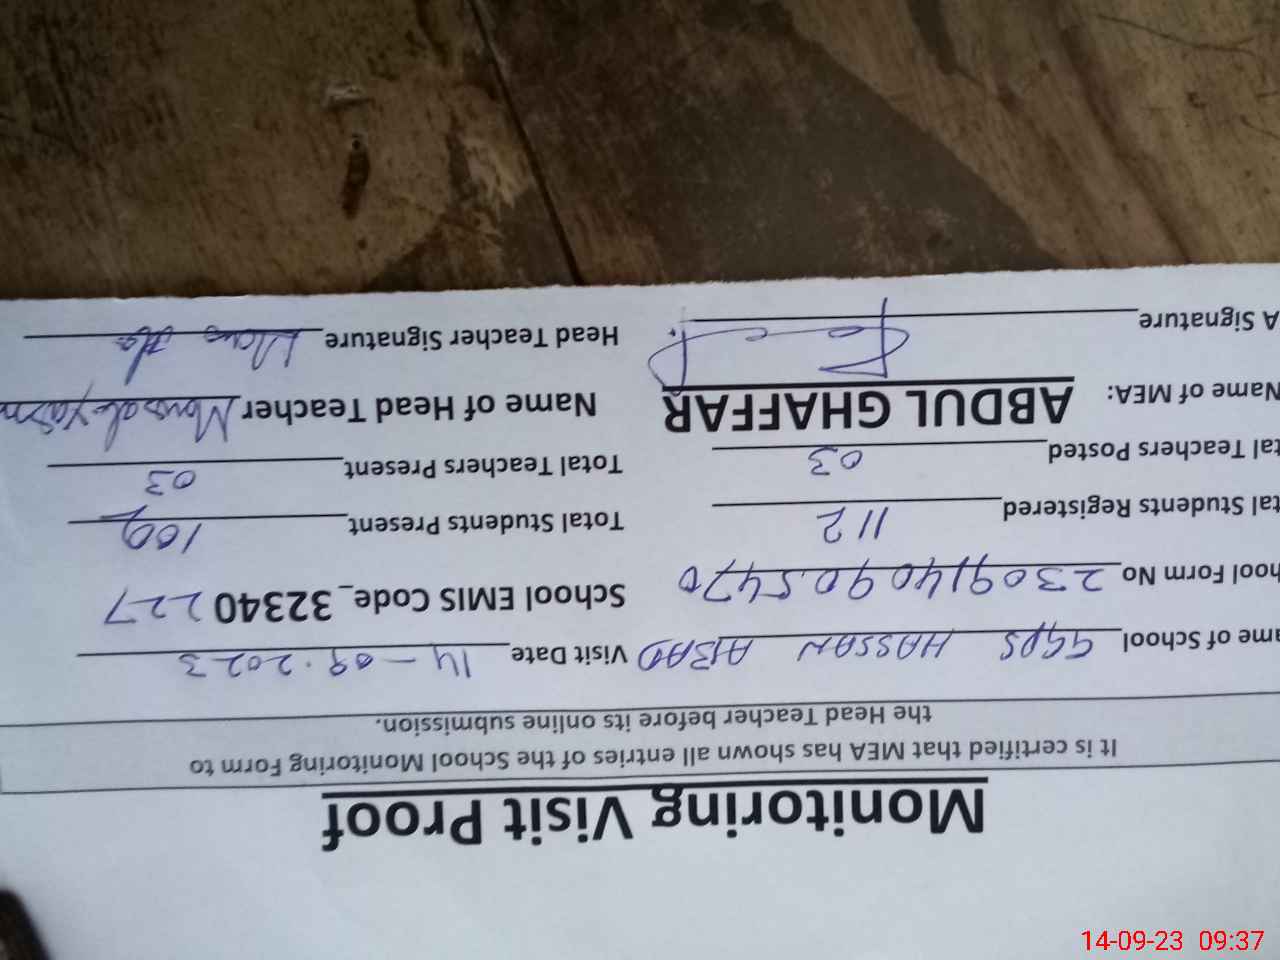 Monitoring Visit Proof
It is certified that MEA has shown all entries of the School Monitoring Form to
the Head Teacher before its online submission.
ame of School GGPS HASSAN ABAD Visit Date 14-09.2023
hool Form No 2309140905470 School EMIS Code_32340227
tal Students Registered 112 Total Students Present
tal Teachers Posted 03 Total Teachers Present 03
Name of MEA: ABDUL GHAFFAR Name of Head Teacher
A Signature Head Teacher Signature
14-09-23 09:37